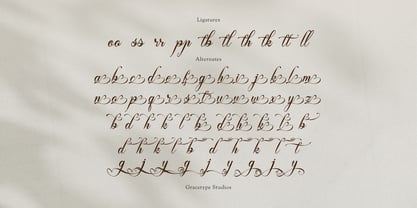 Ligatures
oo ss rr pp tb tl th tk tt ll
Alternates
a b c d e f g h i j k l m
n o p q r s t u v w x y z
b d h k l b d h k l b
d h k l b d h k l
g j y g j y g j y
Gracetype Studios